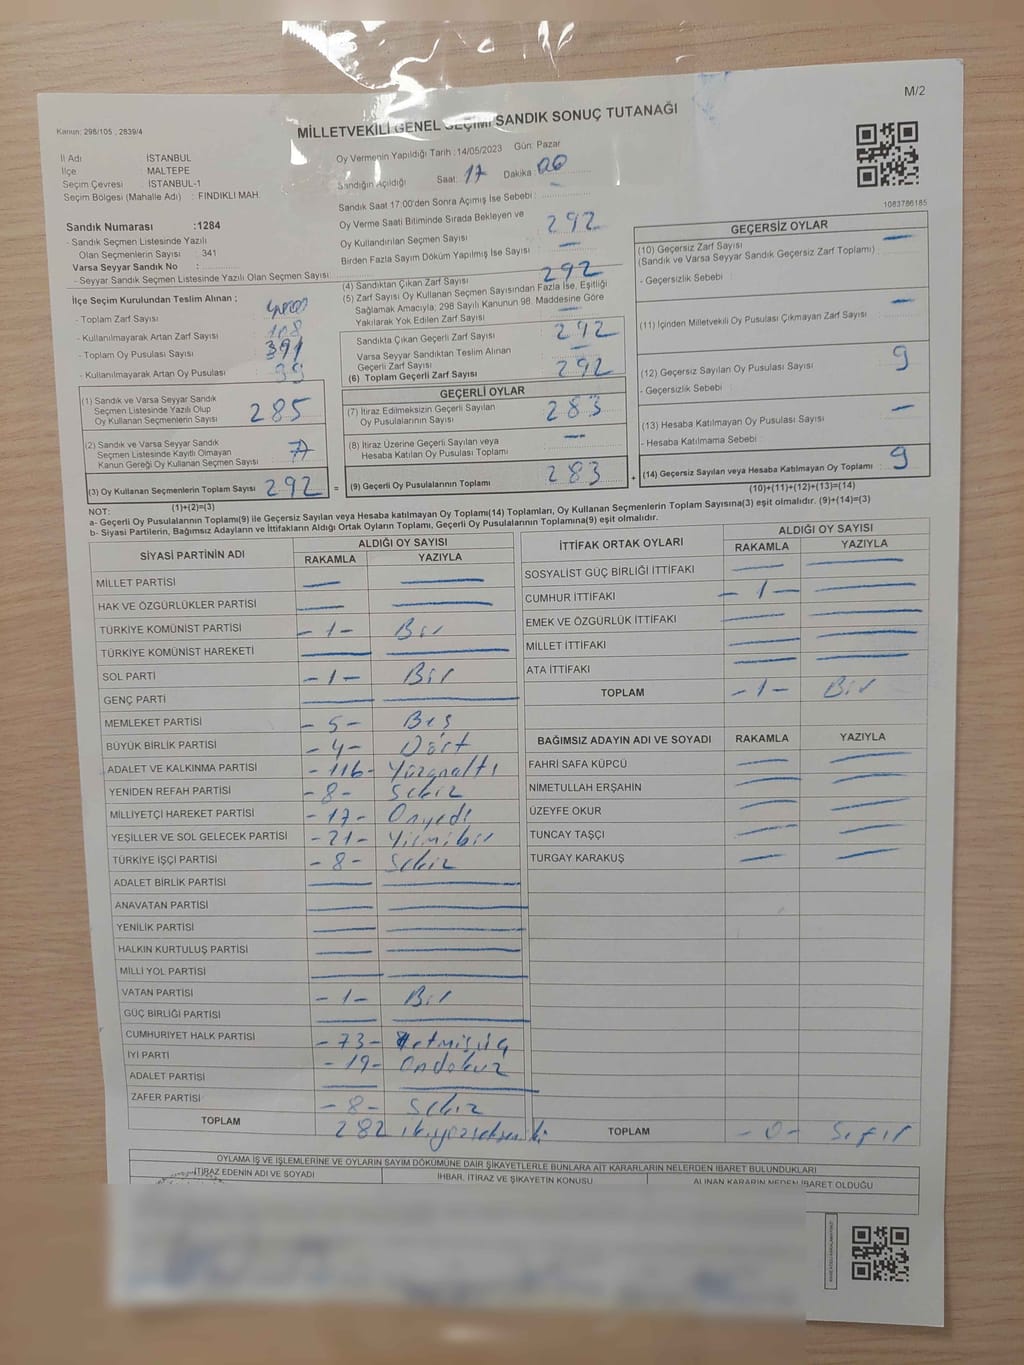 M/2
Kanun: 298/105 , 2839/4
MİLLETVEKİLİ GENEL SEÇİMİ SANDIK SONUÇ TUTANAĞI
İl Adı İSTANBUL
İlçe MALTEPE
Seçim Çevresi İSTANBUL-1
Seçim Bölgesi (Mahalle Adı) : FINDIKLI MAH.
Oy Vermenin Yapıldığı Tarih :14/05/2023 Gün: Pazar
Sandığın Açıldığı Saat: 17 Dakika 00
Sandık Saat 17:00'den Sonra Açmış İse Sebebi :
Oy Verme Saati Bitiminde Sırada Bekleyen ve
Oy Kullandırılan Seçmen Sayısı 292
Birden Fazla Sayım Döküm Yapılmış İse Sayısı : —
1083786185
Sandık Numarası :1284
- Sandık Seçmen Listesinde Yazılı
Olan Seçmenlerin Sayısı : 341
Varsa Seyyar Sandık No :
- Seyyar Sandık Seçmen Listesinde Yazılı Olan Seçmen Sayısı:
İlçe Seçim Kurulundan Teslim Alınan ;
- Toplam Zarf Sayısı
- Kullanılmayarak Artan Zarf Sayısı 108
- Toplam Oy Pusulası Sayısı 391
- Kullanılmayarak Artan Oy Pusulası 99
(1) Sandık ve Varsa Seyyar Sandık
Seçmen Listesinde Yazılı Olup
Oy Kullanan Seçmenlerin Sayısı 285
(2) Sandık ve Varsa Seyyar Sandık
Seçmen Listesinde Kayıtlı Olmayan
Kanun Gereği Oy Kullanan Seçmen Sayısı 7
(3) Oy Kullanan Seçmenlerin Toplam Sayısı 292 =
(1)+(2)=(3)
(4) Sandıktan Çıkan Zarf Sayısı 292
(5) Zarf Sayısı Oy Kullanan Seçmen Sayısından Fazla İse, Eşitliği
Sağlamak Amacıyla, 298 Sayılı Kanunun 98. Maddesine Göre
Yakılarak Yok Edilen Zarf Sayısı —
Sandıkta Çıkan Geçerli Zarf Sayısı 292
Varsa Seyyar Sandıktan Teslim Alınan
Geçerli Zarf Sayısı —
(6) Toplam Geçerli Zarf Sayısı 292
GEÇERLİ OYLAR
(7) İtiraz Edilmeksizin Geçerli Sayılan
Oy Pusulalarının Sayısı 283
(8) İtiraz Üzerine Geçerli Sayılan veya
Hesaba Katılan Oy Pusulası Toplamı —
(9) Geçerli Oy Pusulalarının Toplamı 283 +
GEÇERSİZ OYLAR
(10) Geçersiz Zarf Sayısı —
(Sandık ve Varsa Seyyar Sandık Geçersiz Zarf Toplamı)
- Geçersizlik Sebebi :
(11) İçinden Milletvekili Oy Pusulası Çıkmayan Zarf Sayısı —
(12) Geçersiz Sayılan Oy Pusulası Sayısı 9
- Geçersizlik Sebebi :
(13) Hesaba Katılmayan Oy Pusulası Sayısı —
- Hesaba Katılmama Sebebi :
(14) Geçersiz Sayılan veya Hesaba Katılmayan Oy Toplamı 9
(10)+(11)+(12)+(13)=(14)
NOT:
a- Geçerli Oy Pusulalarının Toplamı(9) ile Geçersiz Sayılan veya Hesaba katılmayan Oy Toplamı(14) Toplamları, Oy Kullanan Seçmenlerin Toplam Sayısına(3) eşit olmalıdır. (9)+(14)=(3)
b- Siyasi Partilerin, Bağımsız Adayların ve İttifakların Aldığı Ortak Oyların Toplamı, Geçerli Oy Pusulalarının Toplamına(9) eşit olmalıdır.
SİYASİ PARTİNİN ADI ALDIĞI OY SAYISI
RAKAMLA YAZIYLA
MİLLET PARTİSİ — —
HAK VE ÖZGÜRLÜKLER PARTİSİ — —
TÜRKİYE KOMÜNİST PARTİSİ -1- Bir
TÜRKİYE KOMÜNİST HAREKETİ — —
SOL PARTİ -1- Bir
GENÇ PARTİ — —
MEMLEKET PARTİSİ -5- Beş
BÜYÜK BİRLİK PARTİSİ -4- Dört
ADALET VE KALKINMA PARTİSİ -116- Yüzonaltı
YENİDEN REFAH PARTİSİ -8- Sekiz
MİLLİYETÇİ HAREKET PARTİSİ -17- Onyedi
YEŞİLLER VE SOL GELECEK PARTİSİ -21- Yirmibir
TÜRKİYE İŞÇİ PARTİSİ -8- Sekiz
ADALET BİRLİK PARTİSİ — —
ANAVATAN PARTİSİ — —
YENİLİK PARTİSİ — —
HALKIN KURTULUŞ PARTİSİ — —
MİLLİ YOL PARTİSİ — —
VATAN PARTİSİ -1- Bir
GÜÇ BİRLİĞİ PARTİSİ — —
CUMHURİYET HALK PARTİSİ -73- Yetmişüç
İYİ PARTİ -19- Ondokuz
ADALET PARTİSİ — —
ZAFER PARTİSİ -8- Sekiz
TOPLAM 282 ikiyüzsekseniki
İTTİFAK ORTAK OYLARI ALDIĞI OY SAYISI
RAKAMLA YAZIYLA
SOSYALİST GÜÇ BİRLİĞİ İTTİFAKI — —
CUMHUR İTTİFAKI -1- —
EMEK VE ÖZGÜRLÜK İTTİFAKI — —
MİLLET İTTİFAKI — —
ATA İTTİFAKI — —
TOPLAM -1- Bir
BAĞIMSIZ ADAYIN ADI VE SOYADI RAKAMLA YAZIYLA
FAHRİ SAFA KÜPCÜ — —
NİMETULLAH ERŞAHİN — —
ÜZEYFE OKUR — —
TUNCAY TAŞÇI — —
TURGAY KARAKUŞ — —
TOPLAM -0- Sıfır
OYLAMA İŞ VE İŞLEMLERİNE VE OYLARIN SAYIM DÖKÜMÜNE DAİR ŞİKAYETLERLE BUNLARA AİT KARARLARIN NELERDEN İBARET BULUNDUKLARI
İTİRAZ EDENİN ADI VE SOYADI İHBAR, İTİRAZ VE ŞİKAYETİN KONUSU ALINAN KARARIN NEDEN İBARET OLDUĞU